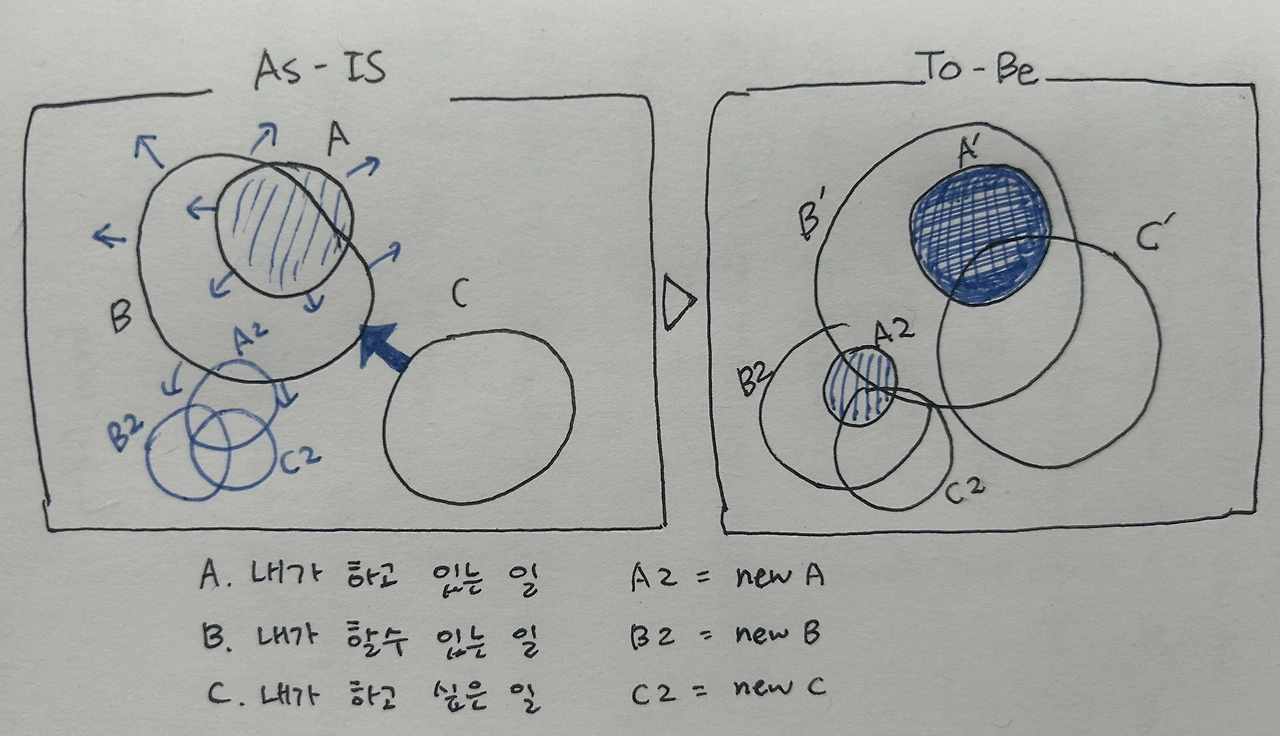 As-IS
A
B
C
A2
B2
C2
To-Be
A'
B'
C'
A2
B2
C2
A. 내가 하고 있는 일
B. 내가 할수 있는 일
C. 내가 하고 싶은 일
A2 = new A
B2 = new B
C2 = new C